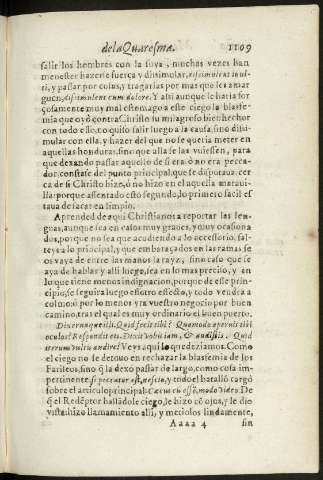 de la Quaresma. 1109
salir los hombres con la suya, muchas vezes han
menester hazerse fuerça y dissimular, dissimulent vul-
y passar por cosas, y tragarlas por mas que les amar
guen, dissimulent cum dolore. Y assi aunque le haria for
çosamente muy mal estomago a este ciego la blasfe-
mia que oyò contra Christo su milagroso bienhechor
con todo esso, no quiso salir luego a la causa, sino dissi-
mular con ella, y hazer del que no se queria meter en
aquellas honduras, sino que alla se las vuiessen, para
que dexando passar aquello de si era, ò no era pecca-
dor, constasse del punto principal, que se disputaua, cer
ca de si Christo hizo, ò no hizo en el aquella maraui-
lla: porque assentado esto segundo, lo primero facil es
taua de sacar en limpio.
Aprended de aqui Christianos a reportar las len-
guas, aunque sea en casos muy graues, y muy ocasiona
dos, porque no sea que acudiendo a lo accessorio, sal-
teys a lo principal, y que embaraçados en las ramas se
os vaya de entre las manos la rayz; sino caso que se
aya de hablar y assi luego, sea en lo mas precio, y en
lo que tiene menos indignacion, porque de esse princi-
pio, se seguira luego essotro effecto, y todo vendra a
colmo: ò por lo menos yra vuestro negocio por buen
camino, tras el qual es muy ordinario el buen puerto.
Dixerunque illi. Quid fecit tibi? Quomodo aperuit tibi
oculos? Respondit eis. Dixi vobis iam, & audistis. Quid
iterum vultis audire? Veys aqui lo que deziamos. Como
el ciego no se detuuo en rechazar la blasfemia de los
Fariseos, sino q̃ la dexò passar de largo, como cosa im-
pertinente, si peccator est, nescio, y todo el batallò cargò
sobre el articulo principal: Caecus cũ essem, modo video. De
q̃ el Redẽptor hallãdole ciego, le hizo cõ ojos, y le dio
vista: hizo llamamiento alli, y metiolos lindamente,
Aaaa 4 sin